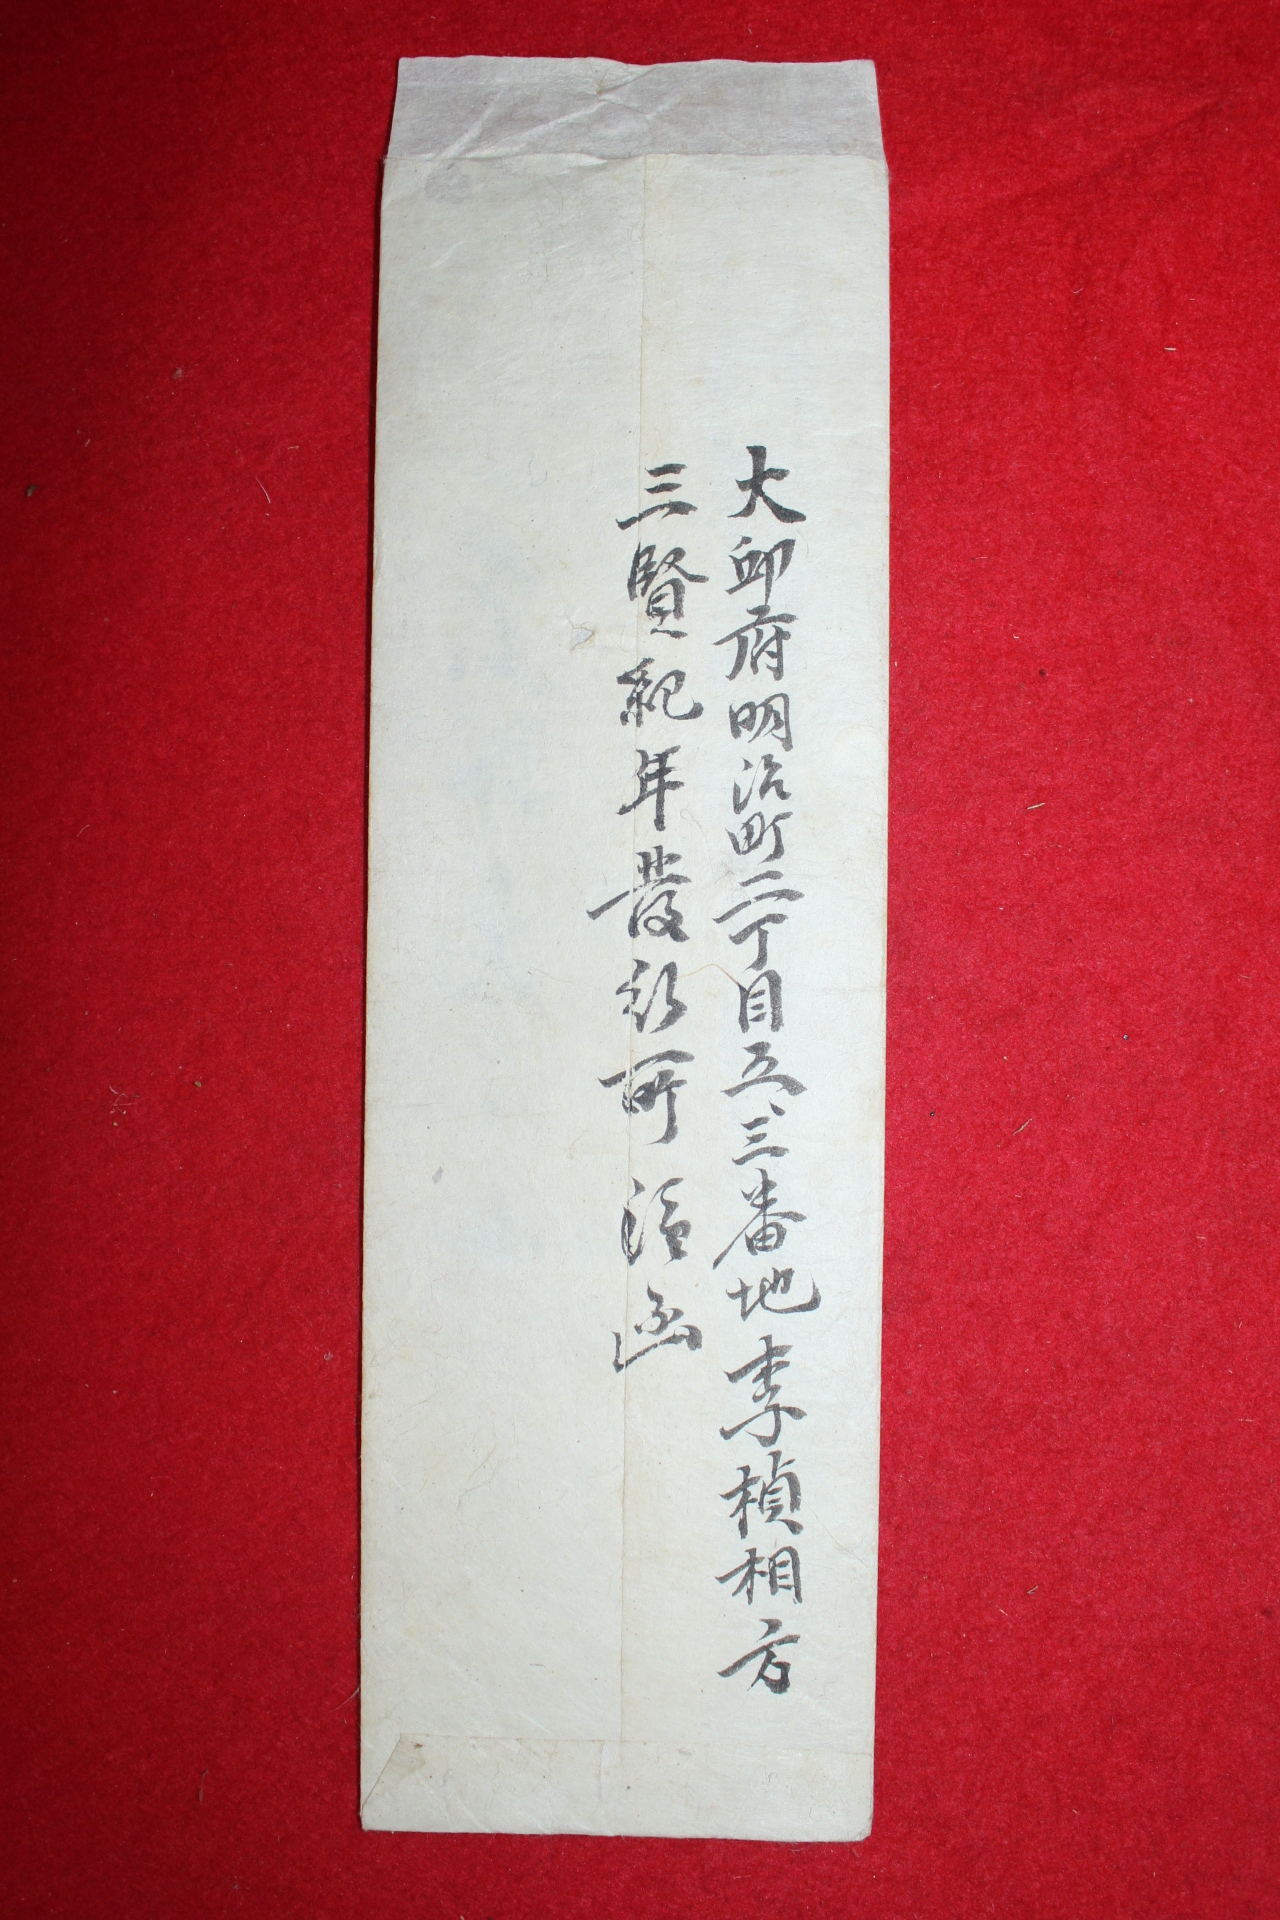 大邱府明治町二丁目五、三番地李楨相方
三賢紀年發彩所溢函